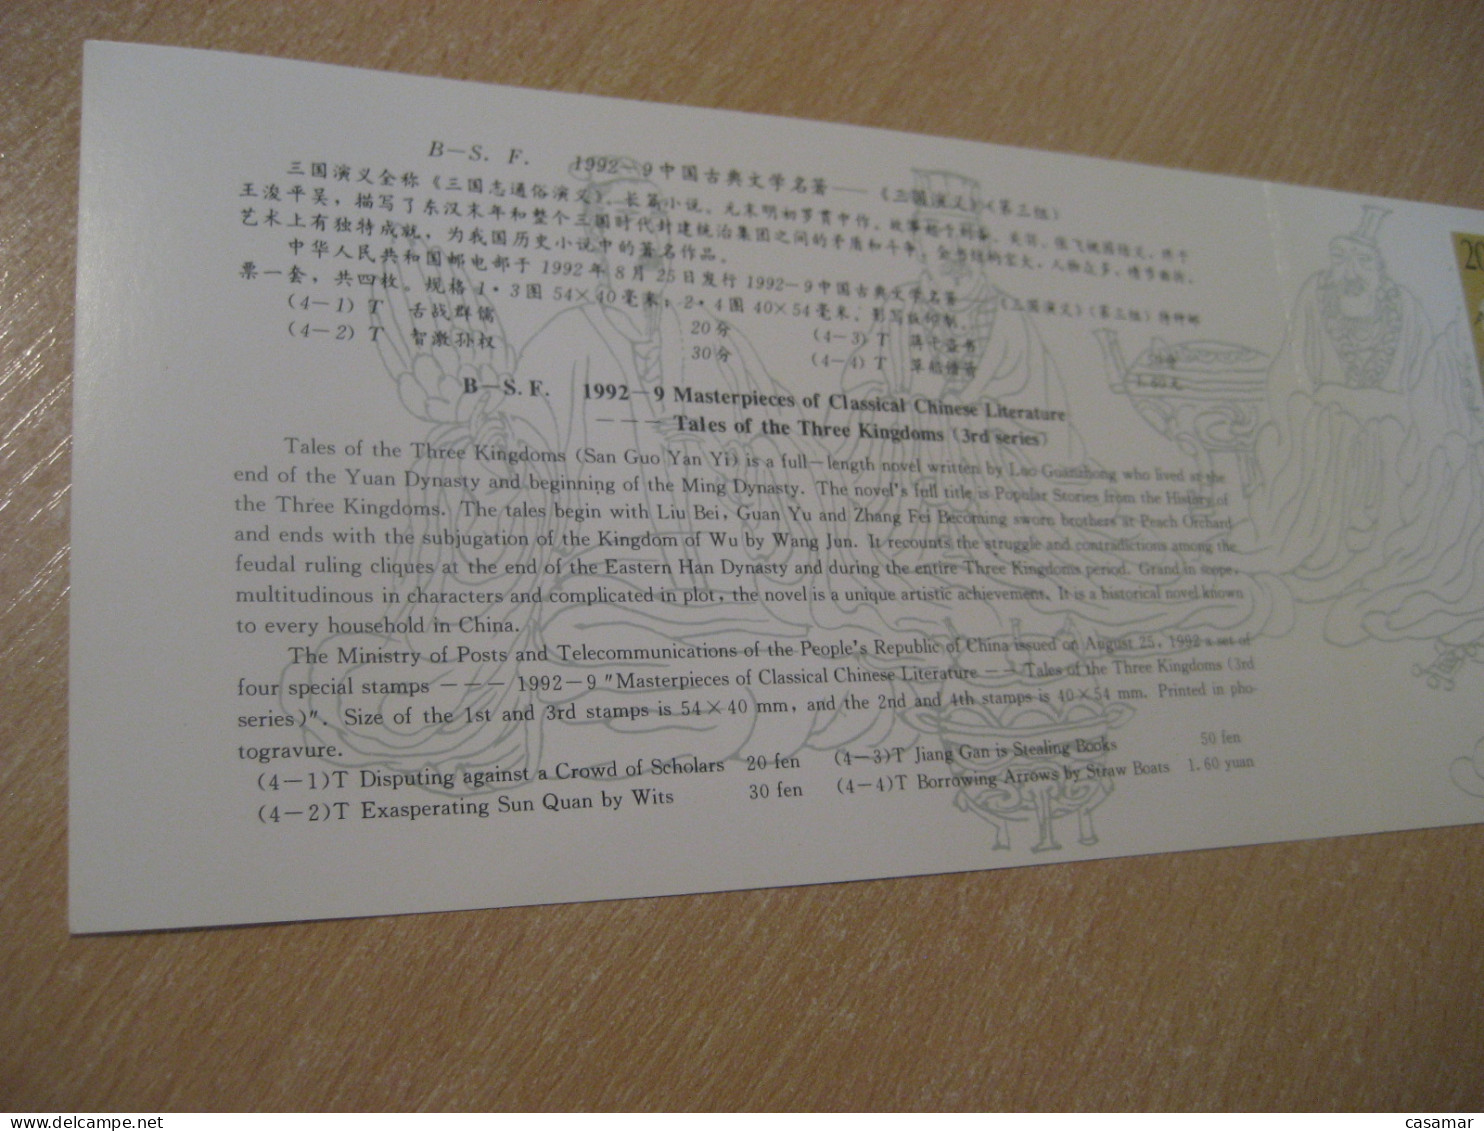 B－S. F. 1992－9中国古典文学名著——《三国演义》（第三组）
三国演义全称《三国志通俗演义》，长篇小说。元末明初罗贯中作。故事起于刘备、关羽、张飞桃园结义，终于
王浚平吴，描写了东汉末年和整个三国时代封建统治集团之间的矛盾和斗争。全书结构宏大，人物众多，情节曲折，
艺术上有独特成就，为我国历史小说中的著名作品。
中华人民共和国邮电部于1992年8月25日发行1992－9中国古典文学名著——《三国演义》（第三组）特种邮
票一套，共四枚。规格1·3图54×40毫米；2·4图40×54毫米。影写版印制。
(4－1) T 舌战群儒 20分 (4－3) T 蒋干盗书
(4－2) T 智激孙权 30分 (4－4) T 草船借箭 1.60元
B－S. F. 1992－9 Masterpieces of Classical Chinese Literature
－－－ Tales of the Three Kingdoms (3rd series)
Tales of the Three Kingdoms (San Guo Yan Yi) is a full－length novel written by Luo Guanzhong who lived at the
end of the Yuan Dynasty and beginning of the Ming Dynasty. The novel's full title is Popular Stories from the History of
the Three Kingdoms. The tales begin with Liu Bei, Guan Yu and Zhang Fei Becoming sworn brothers at Peach Orchard
and ends with the subjugation of the Kingdom of Wu by Wang Jun. It recounts the struggle and contradictions among the
feudal ruling cliques at the end of the Eastern Han Dynasty and during the entire Three Kingdoms period. Grand in scope,
multitudinous in characters and complicated in plot, the novel is a unique artistic achievement. It is a historical novel known
to every household in China.
The Ministry of Posts and Telecommunications of the People's Republic of China issued on August 25, 1992 a set of
four special stamps －－－ 1992－9 "Masterpieces of Classical Chinese Literature －－ Tales of the Three Kingdoms (3rd
series)". Size of the 1st and 3rd stamps is 54×40 mm, and the 2nd and 4th stamps is 40×54 mm. Printed in pho-
togravure.
(4－1)T Disputing against a Crowd of Scholars 20 fen (4－3)T Jiang Gan is Stealing Books 50 fen
(4－2)T Exasperating Sun Quan by Wits 30 fen (4－4)T Borrowing Arrows by Straw Boats 1.60 yuan
20
www.delcampe.net
casamar